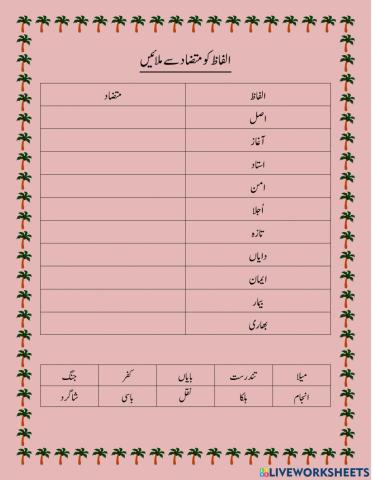 الفاظ کو متضاد سے ملائیں
الفاظ متضاد
اصل
آغاز
استاد
امن
اُجلا
تازہ
دایاں
ایمان
بیمار
بھاری
میلا تندرست بایاں کفر جنگ
انجام ہلکا نقل باسی شاگرد
LIVEWORKSHEETS